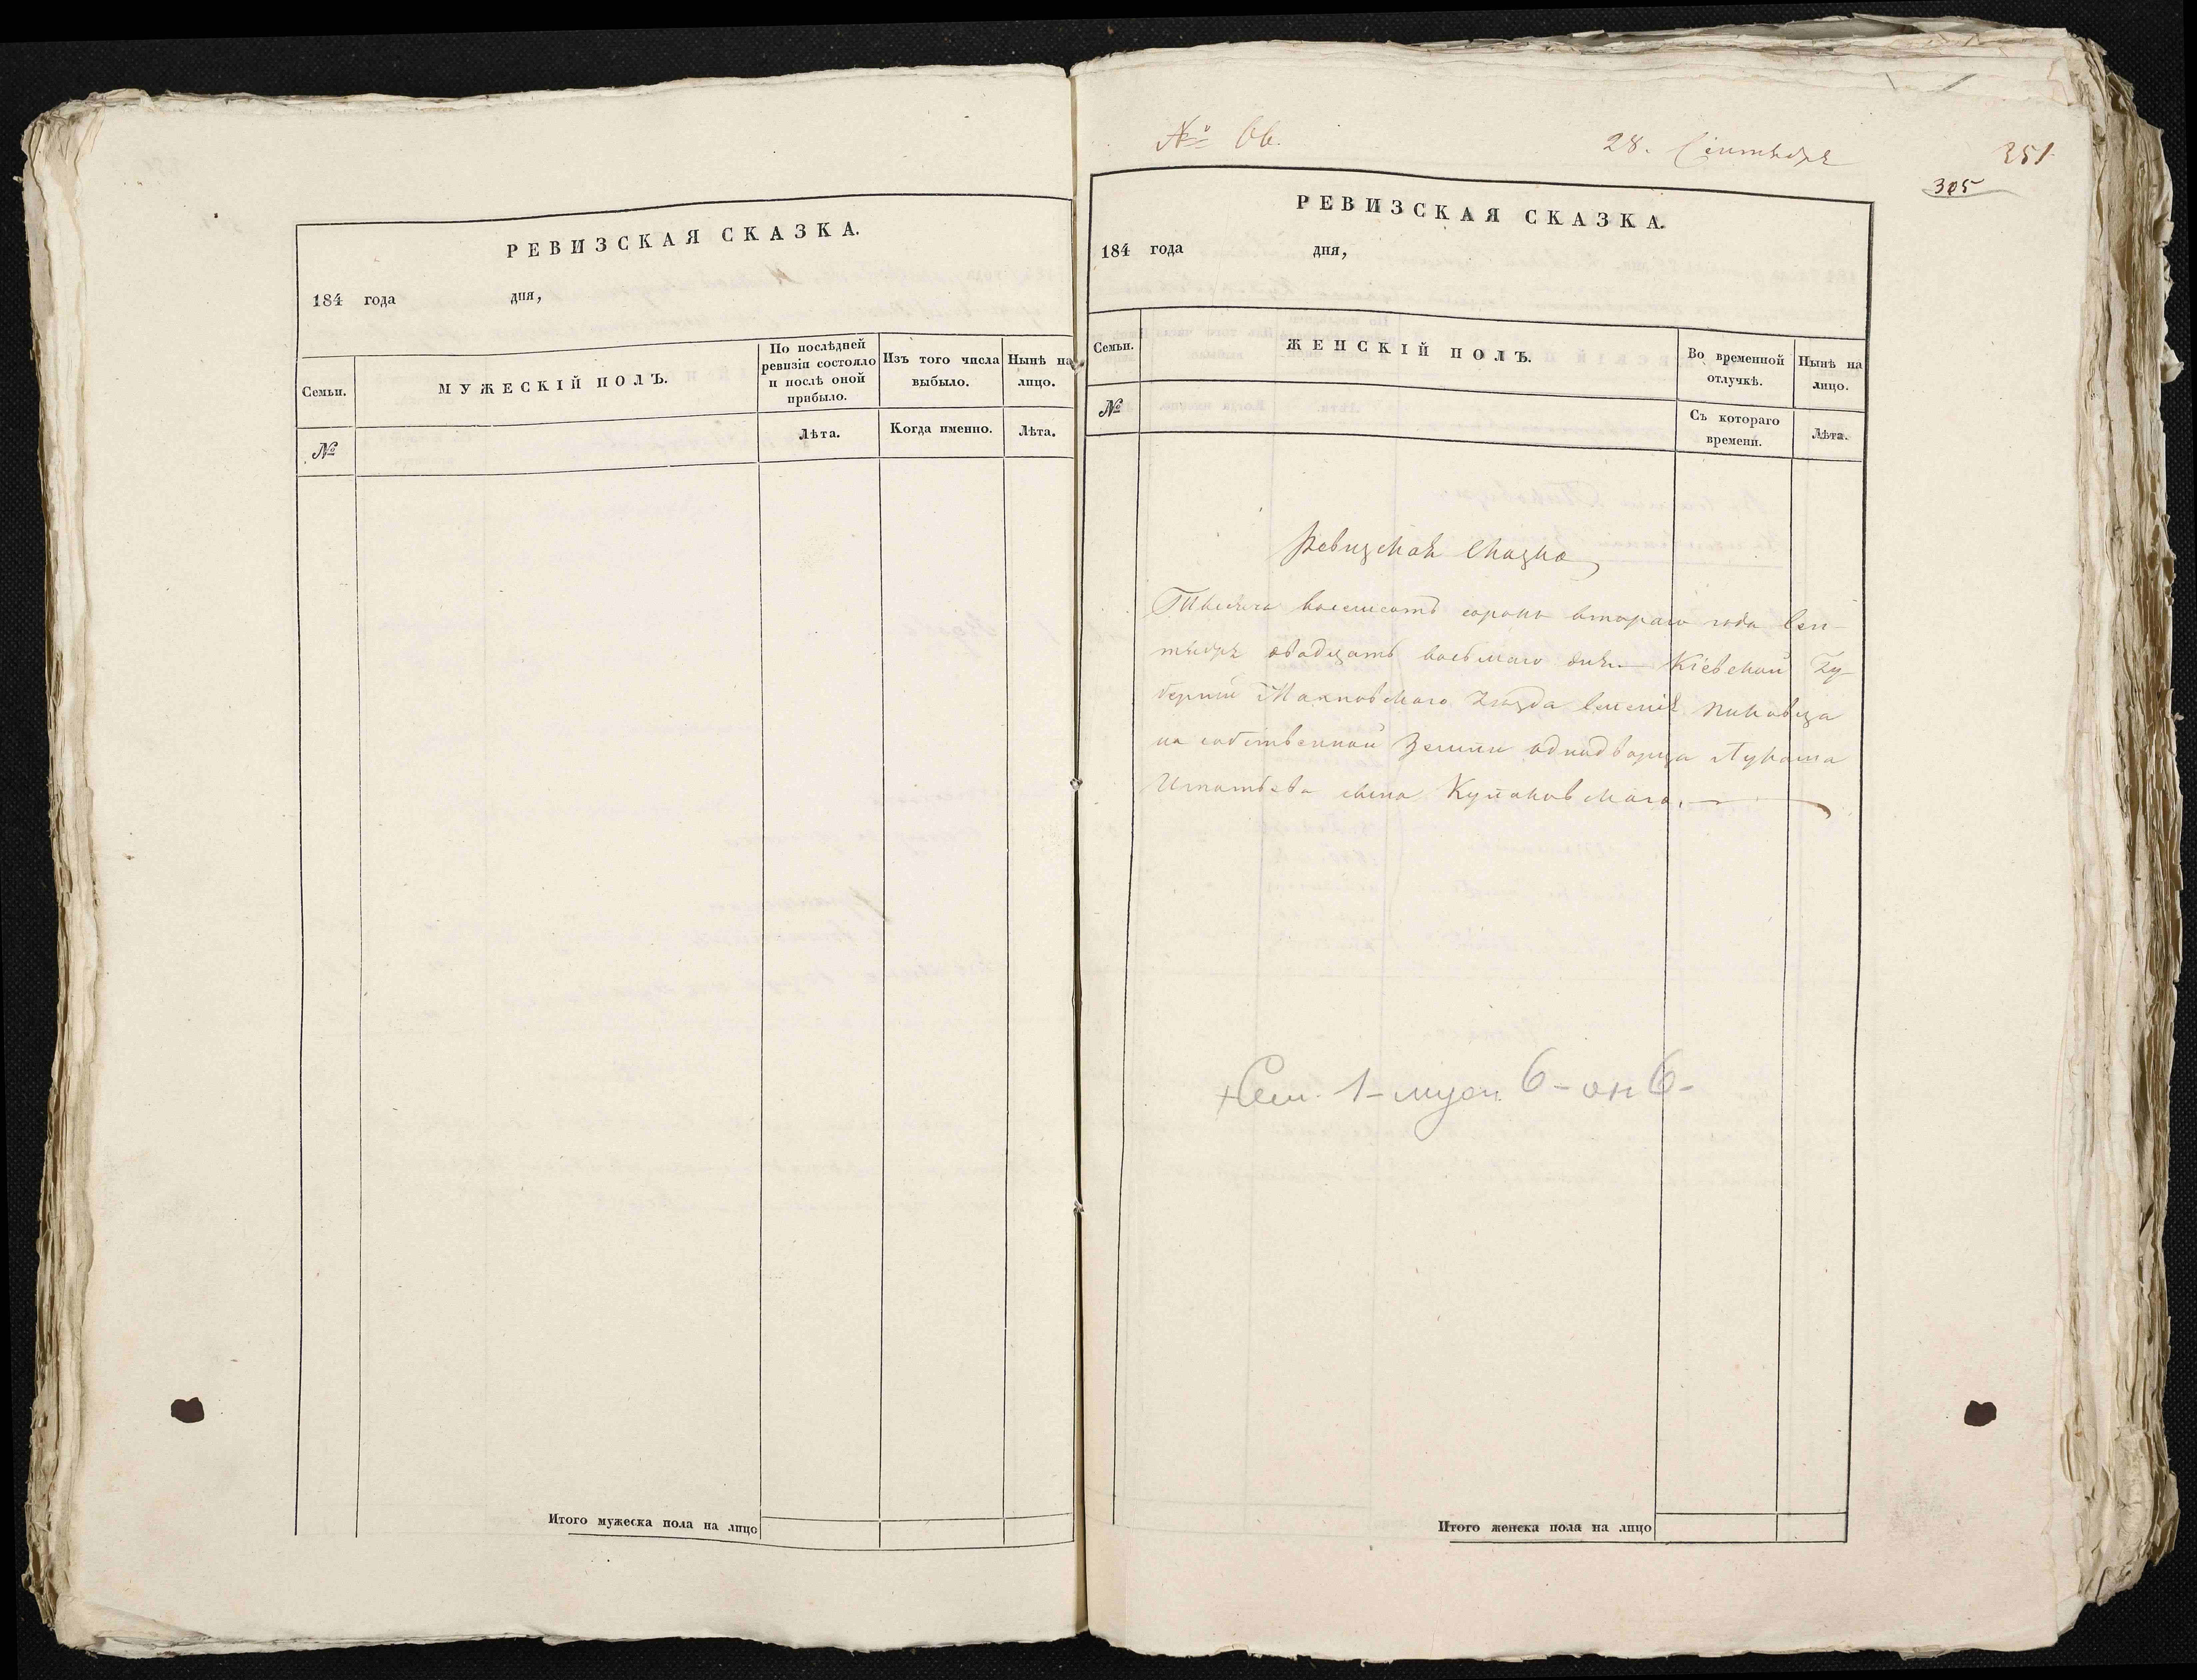 РЕВИЗСКАЯ СКАЗКА.
184 года дня,
Семьи.
МУЖЕСКІЙ ПОЛЪ.
По послѣдней ревизіи состояло и послѣ оной прибыло.
Изъ того числа выбыло.
Нынѣ на лицо.
№
Лѣта.
Когда именно.
Лѣта.
Итого мужеска пола на лицо
№ 66.
28. Сентября
351
305
РЕВИЗСКАЯ СКАЗКА.
184 года дня,
Семьи.
ЖЕНСКІЙ ПОЛЪ.
Во временной отлучкѣ.
Нынѣ на лицо.
№
Съ котораго времени.
Лѣта.
Ревизская Сказка
Тысяча восемсотъ сорокъ втораго года Сен-
тября двадцать восьмаго дня — Кіевской Гу-
берніи Махновскаго Уѣзда селенія Пиковца
на собственной Земли однодворца Лукаша
Игнатьева сына Купановскаго.
Сем. 1 - муж. 6 - жн 6 -
Итого женска пола на лицо